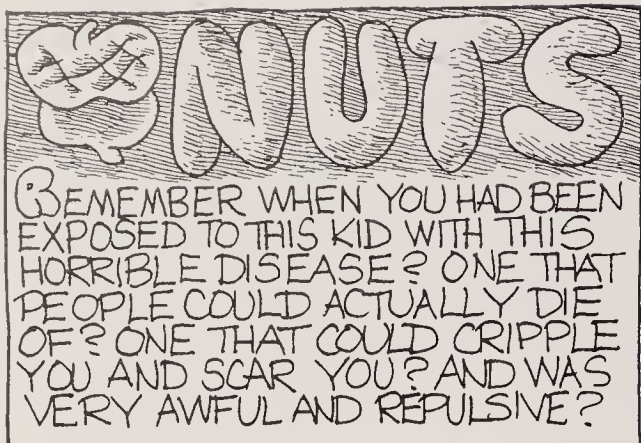 NUTS
REMEMBER WHEN YOU HAD BEEN
EXPOSED TO THIS KID WITH THIS
HORRIBLE DISEASE? ONE THAT
PEOPLE COULD ACTUALLY DIE
OF? ONE THAT COULD CRIPPLE
YOU AND SCAR YOU? AND WAS
VERY AWFUL AND REPULSIVE?